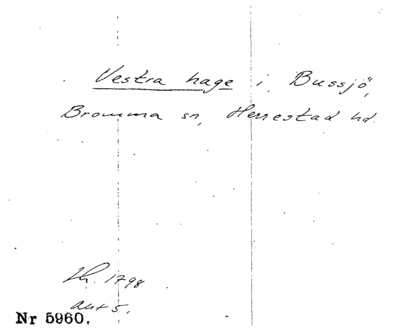 Vestra hage i Bussjö,
Bromma sn, Herrestad hd.
Lh. 1798
akt 5.
Nr 5960.